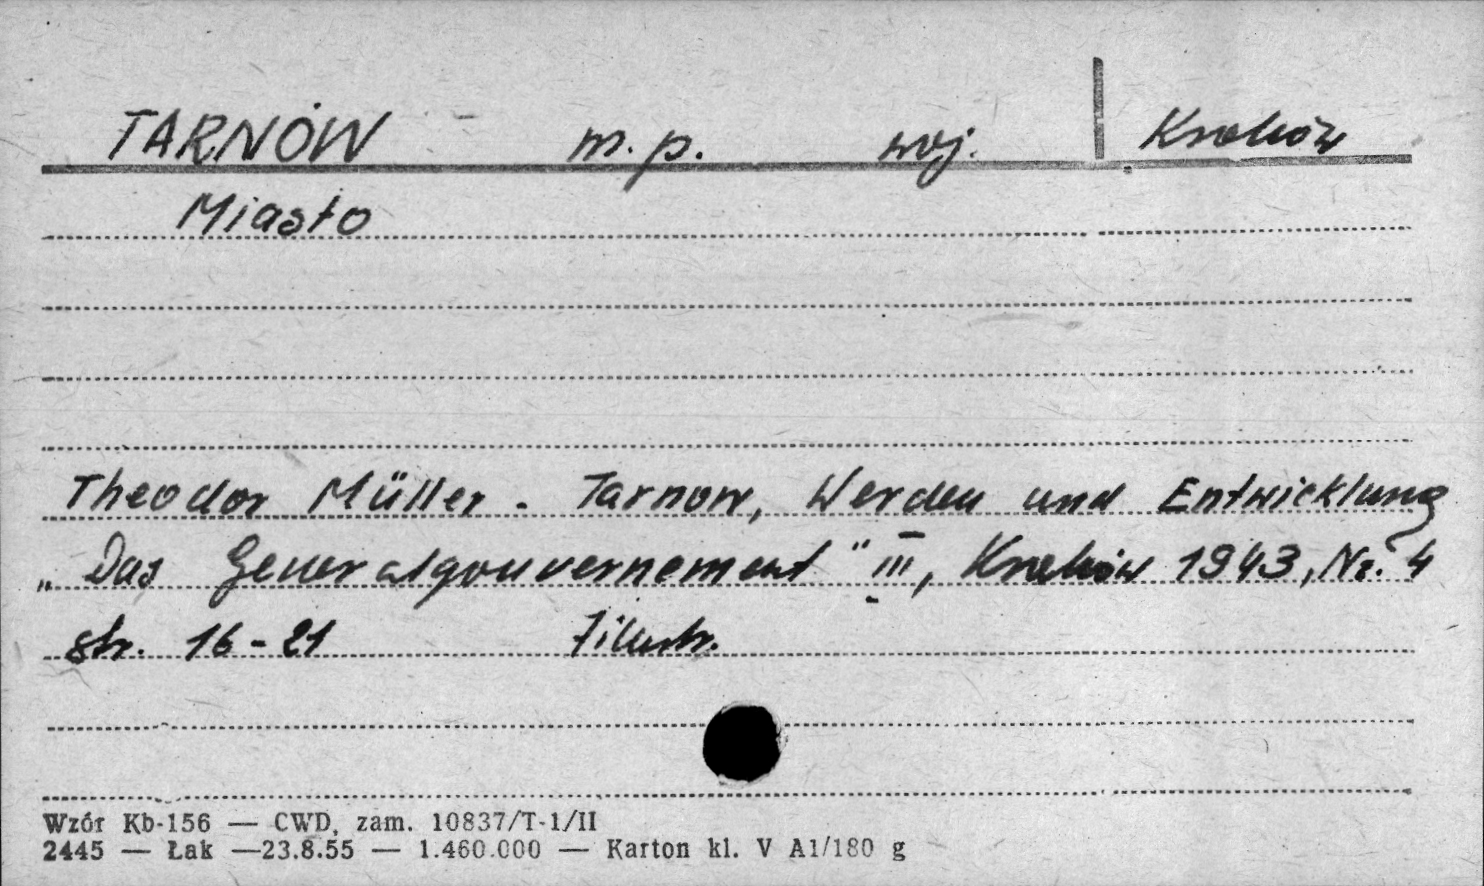 TARNÓW m.p. woj. Kraków
Miasto
Theodor Müller - Tarnow, Werden und Entwicklung
„Das Generalgouvernement" III, Kraków 1943, Nr. 4
str. 16-21 Jllustr.
Wzór Kb-156 — CWD, zam. 10837/T-1/II
2445 — Łak —23.8.55 — 1.460.000 — Karton kl. V A1/180 g